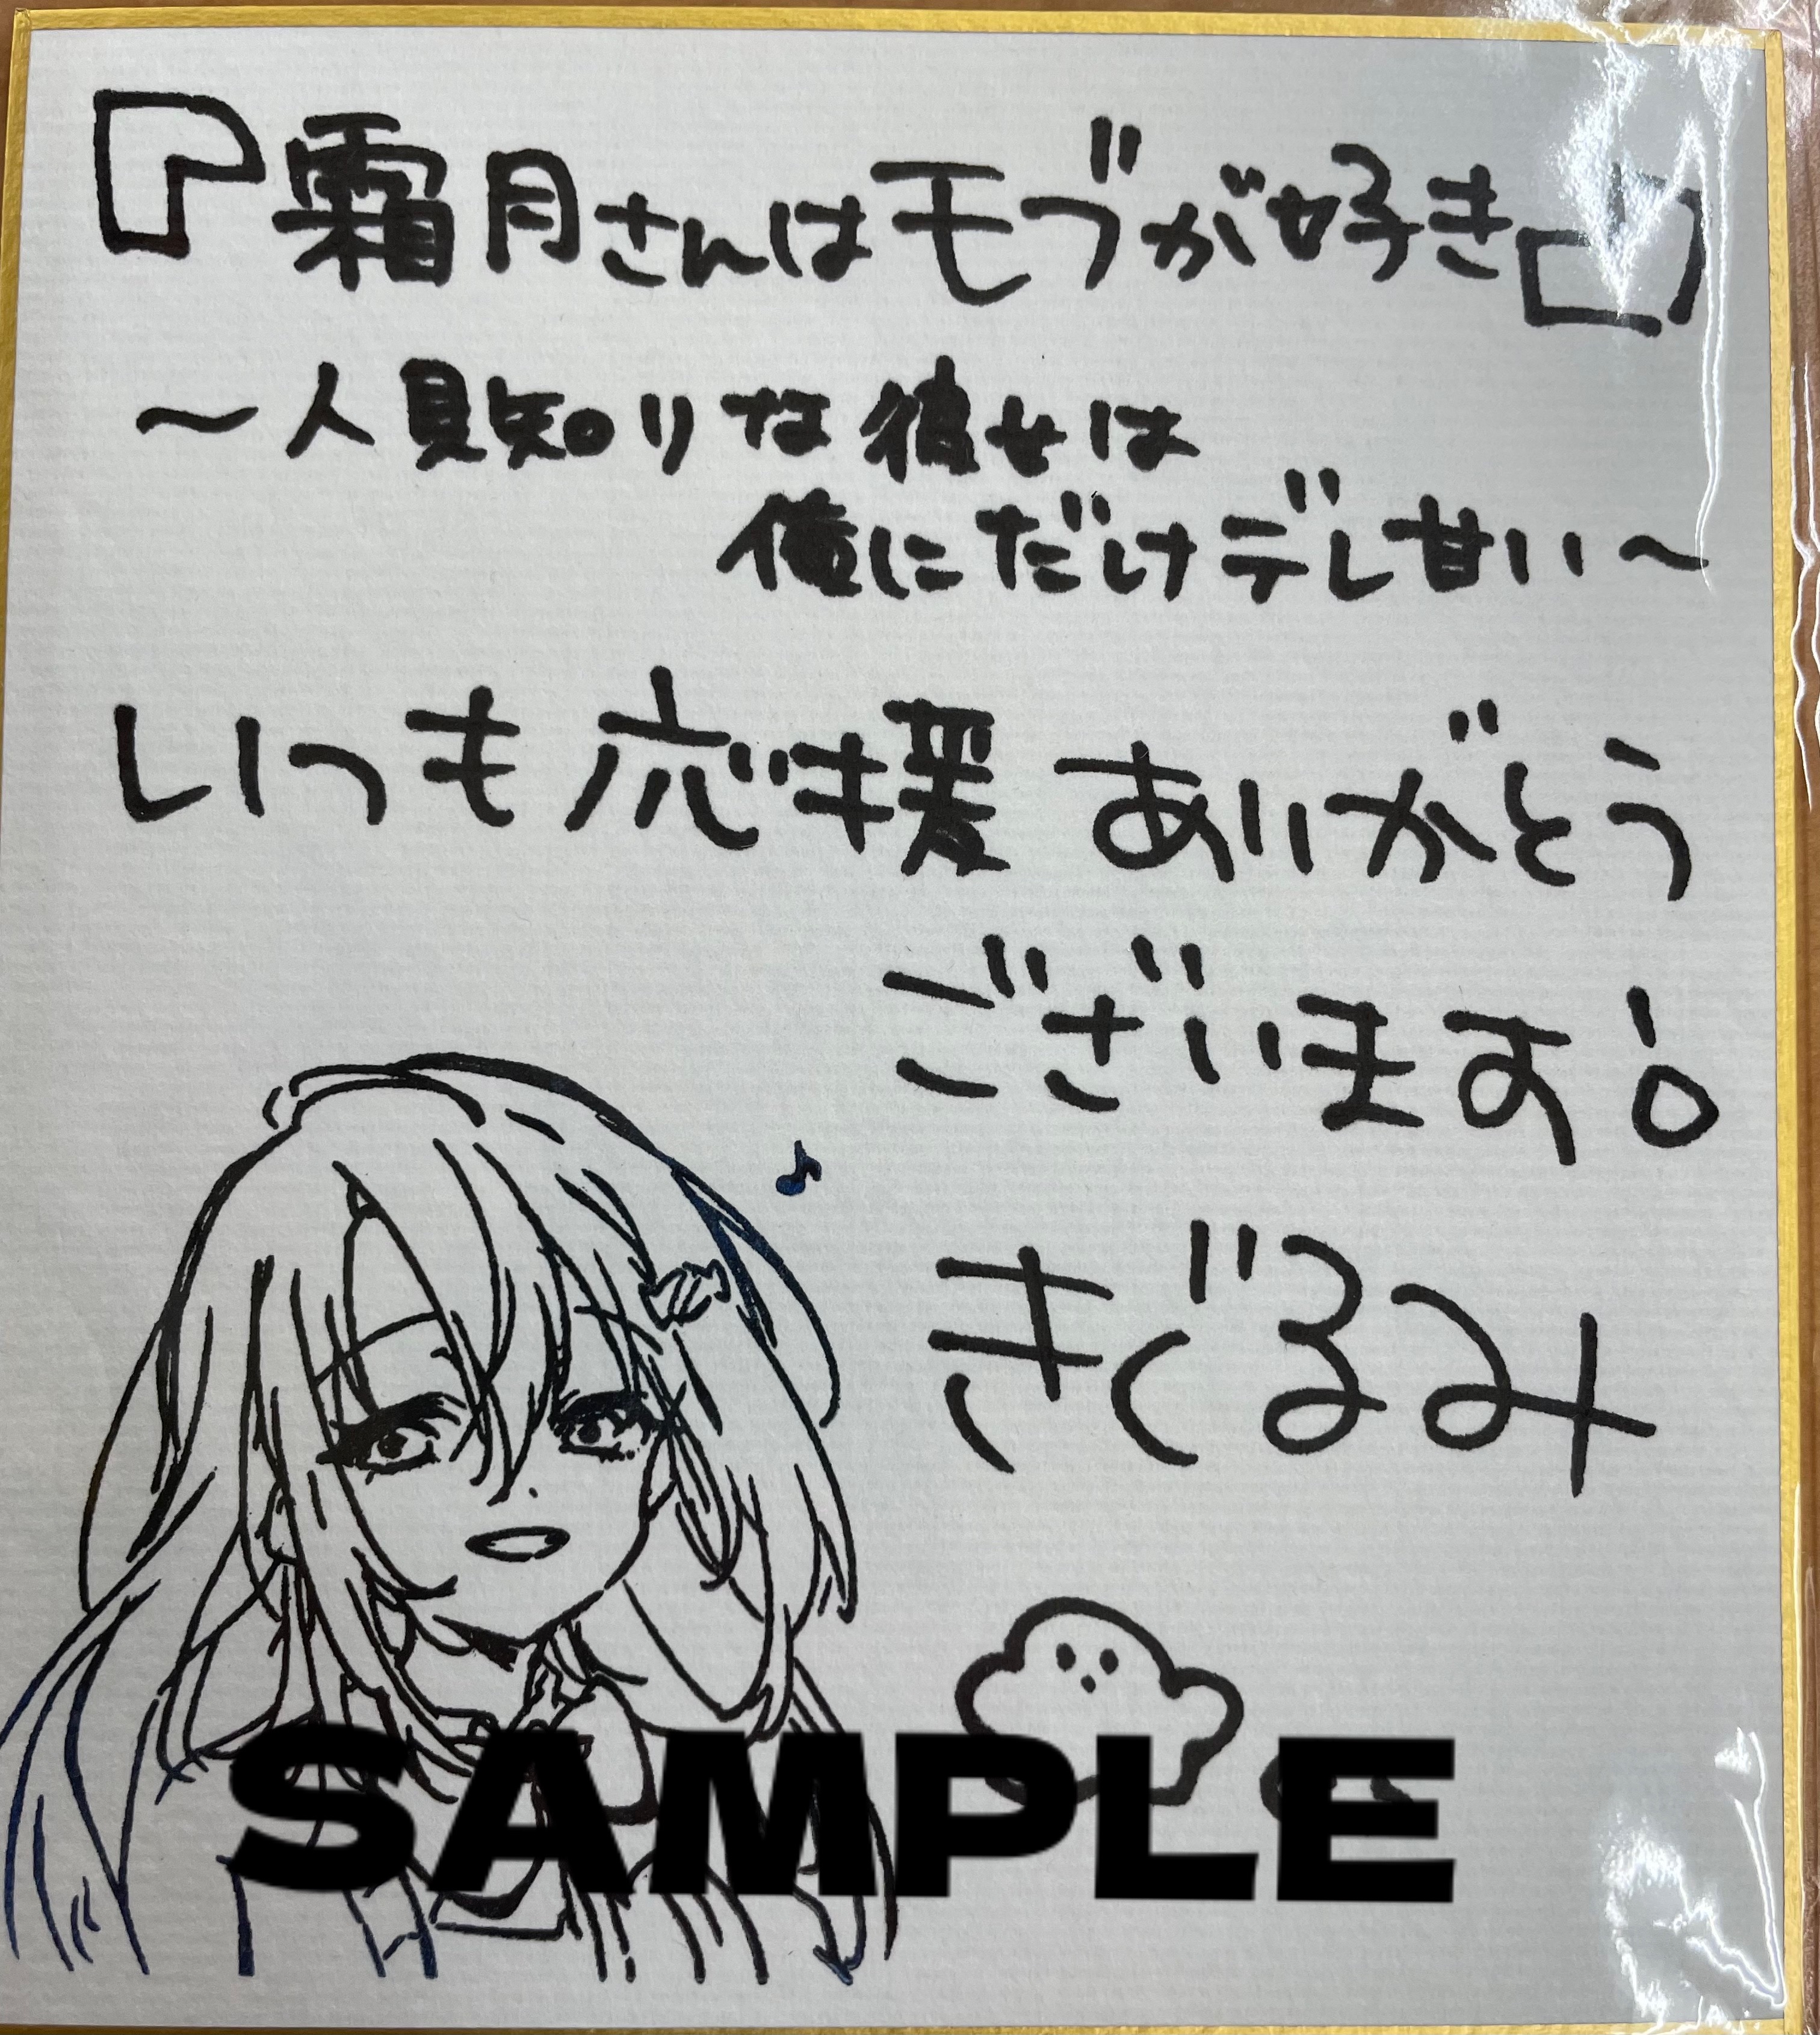 『霜月さんはモブが好き』
～人見知りな彼女は
俺にだけデレ甘い～
いつも応援ありがとう
ございます！
きぐるみ
SAMPLE